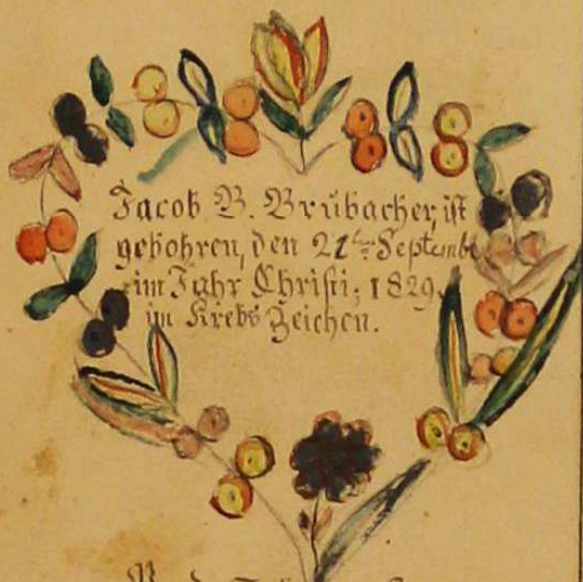 Jacob B. Brubacher, ist
gebohren, den 21ten Septembe
im Jahr Christi; 1829.
im Krebs Zeichen.